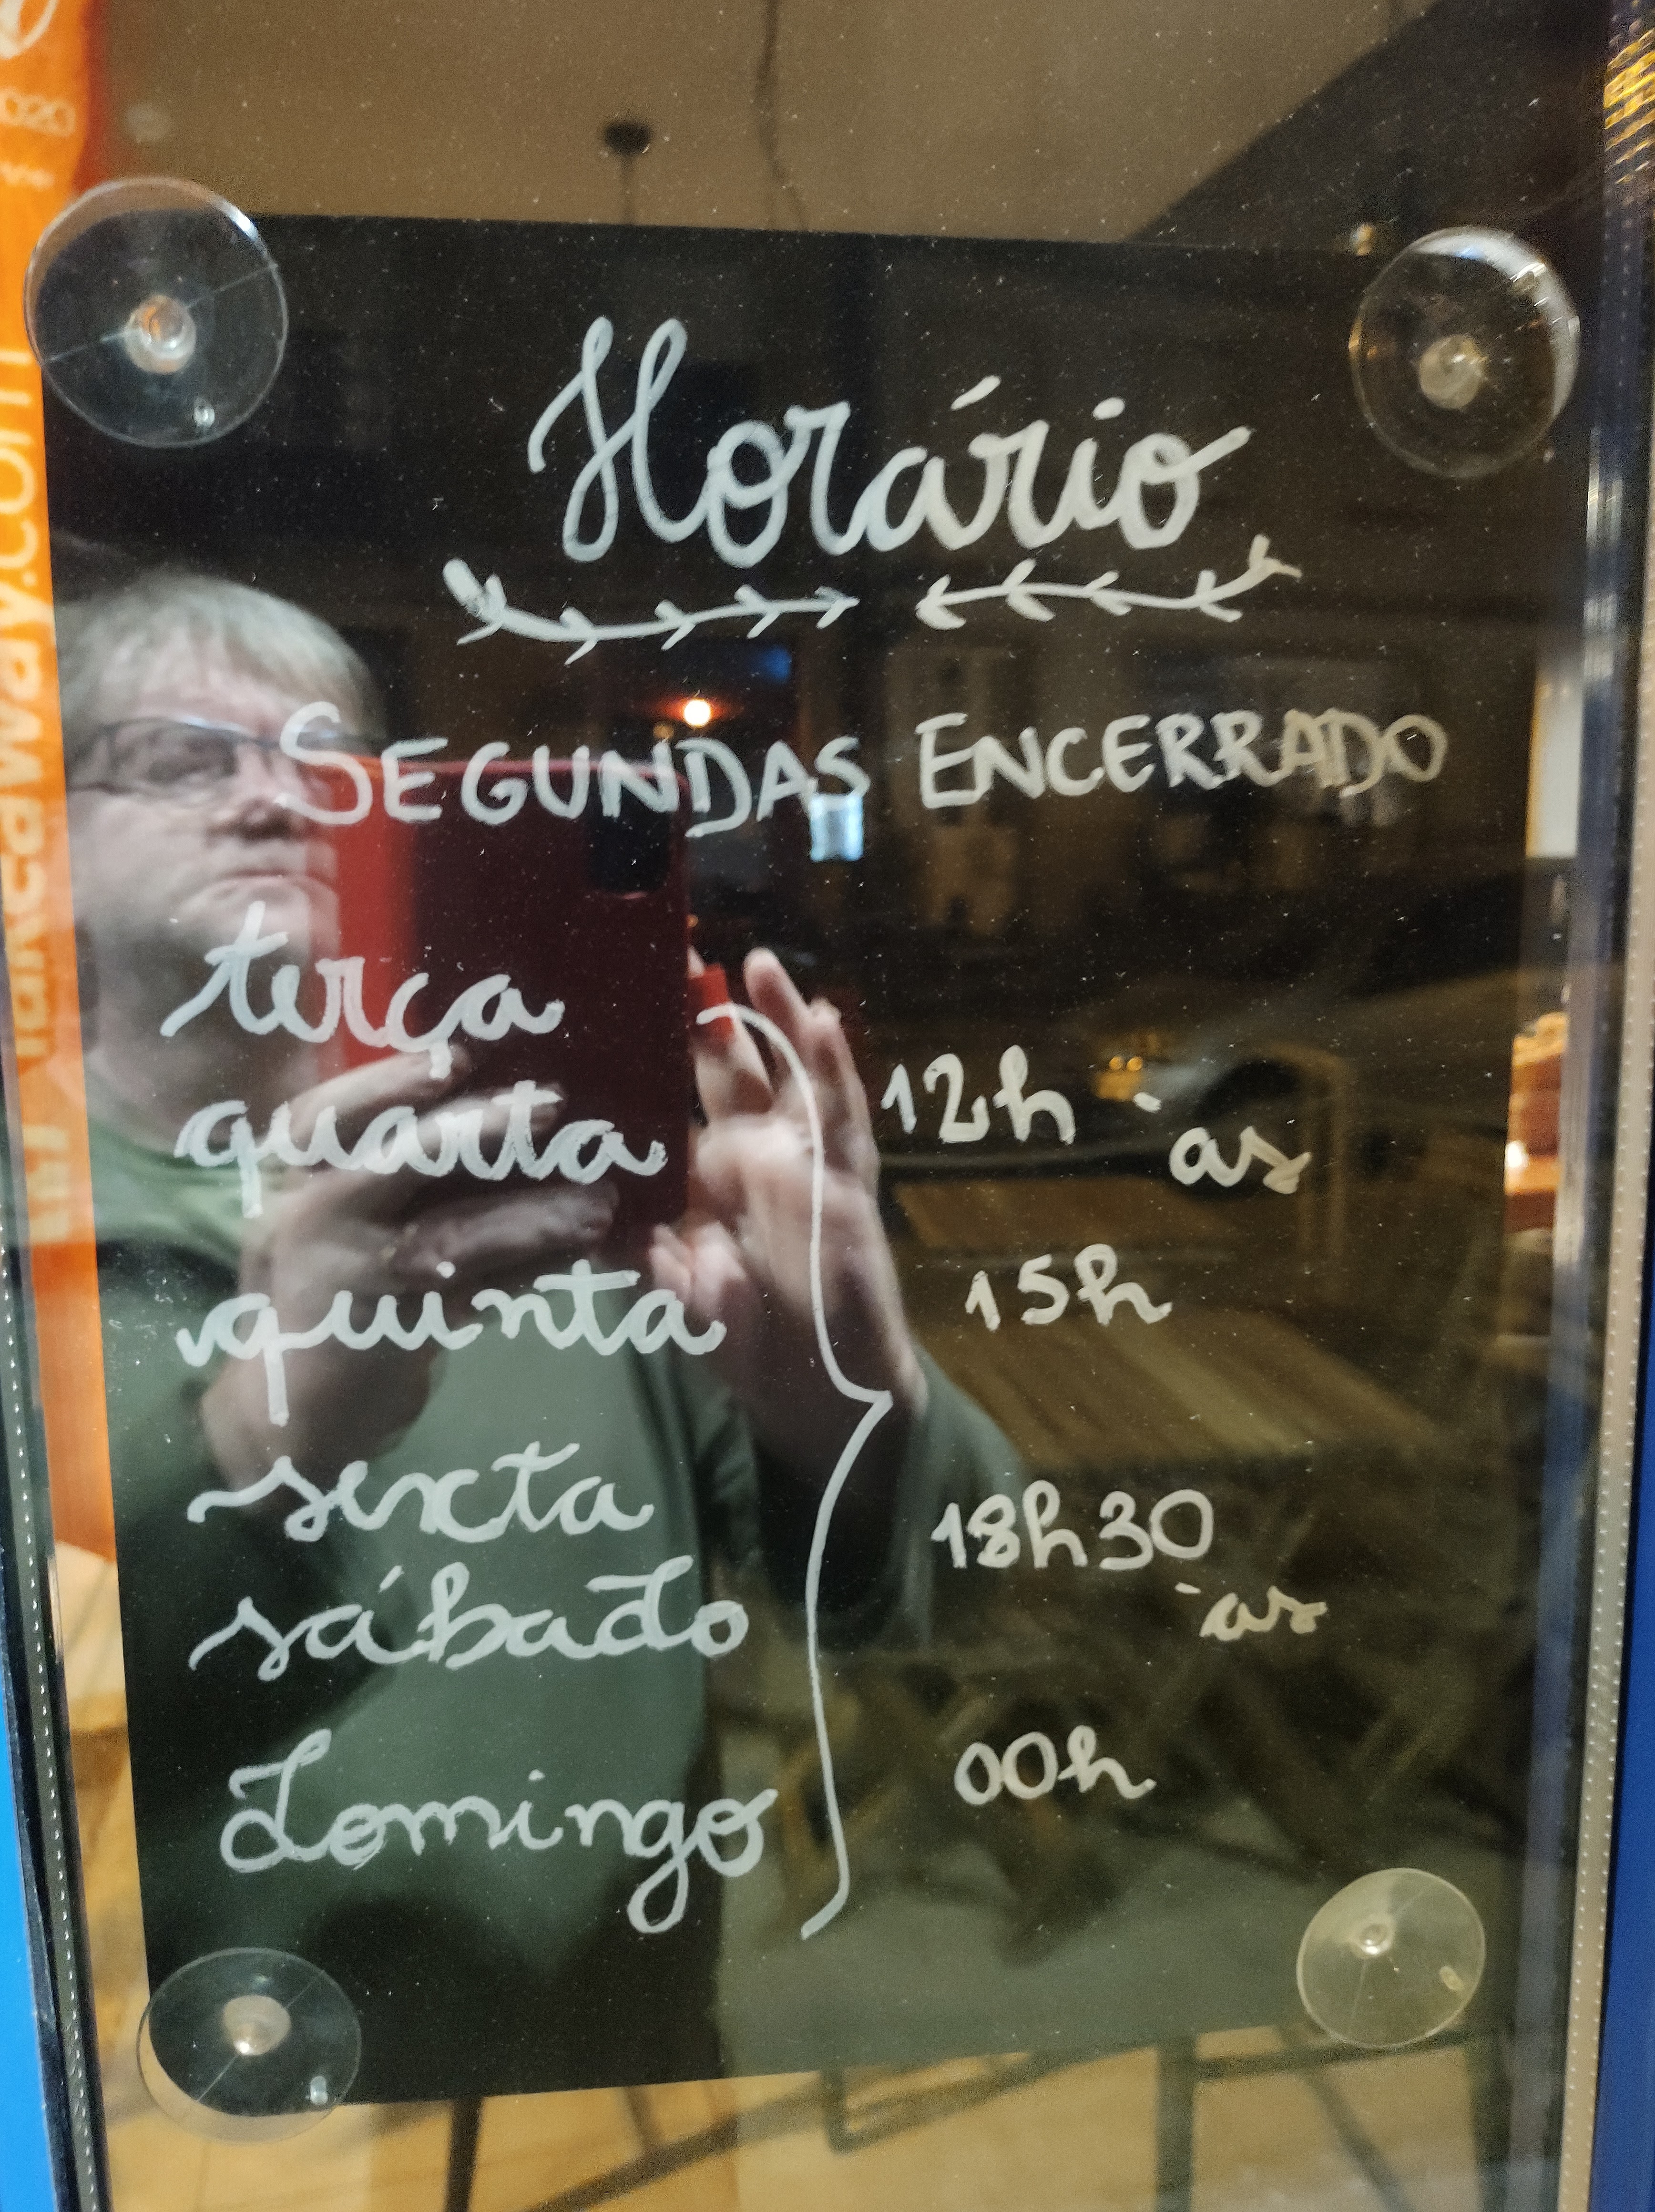 Horário
SEGUNDAS ENCERRADO
terça
quarta
quinta
sexta
sábado
Domingo
12h às
15h
18h30
às
00h
takeaway.com
2020